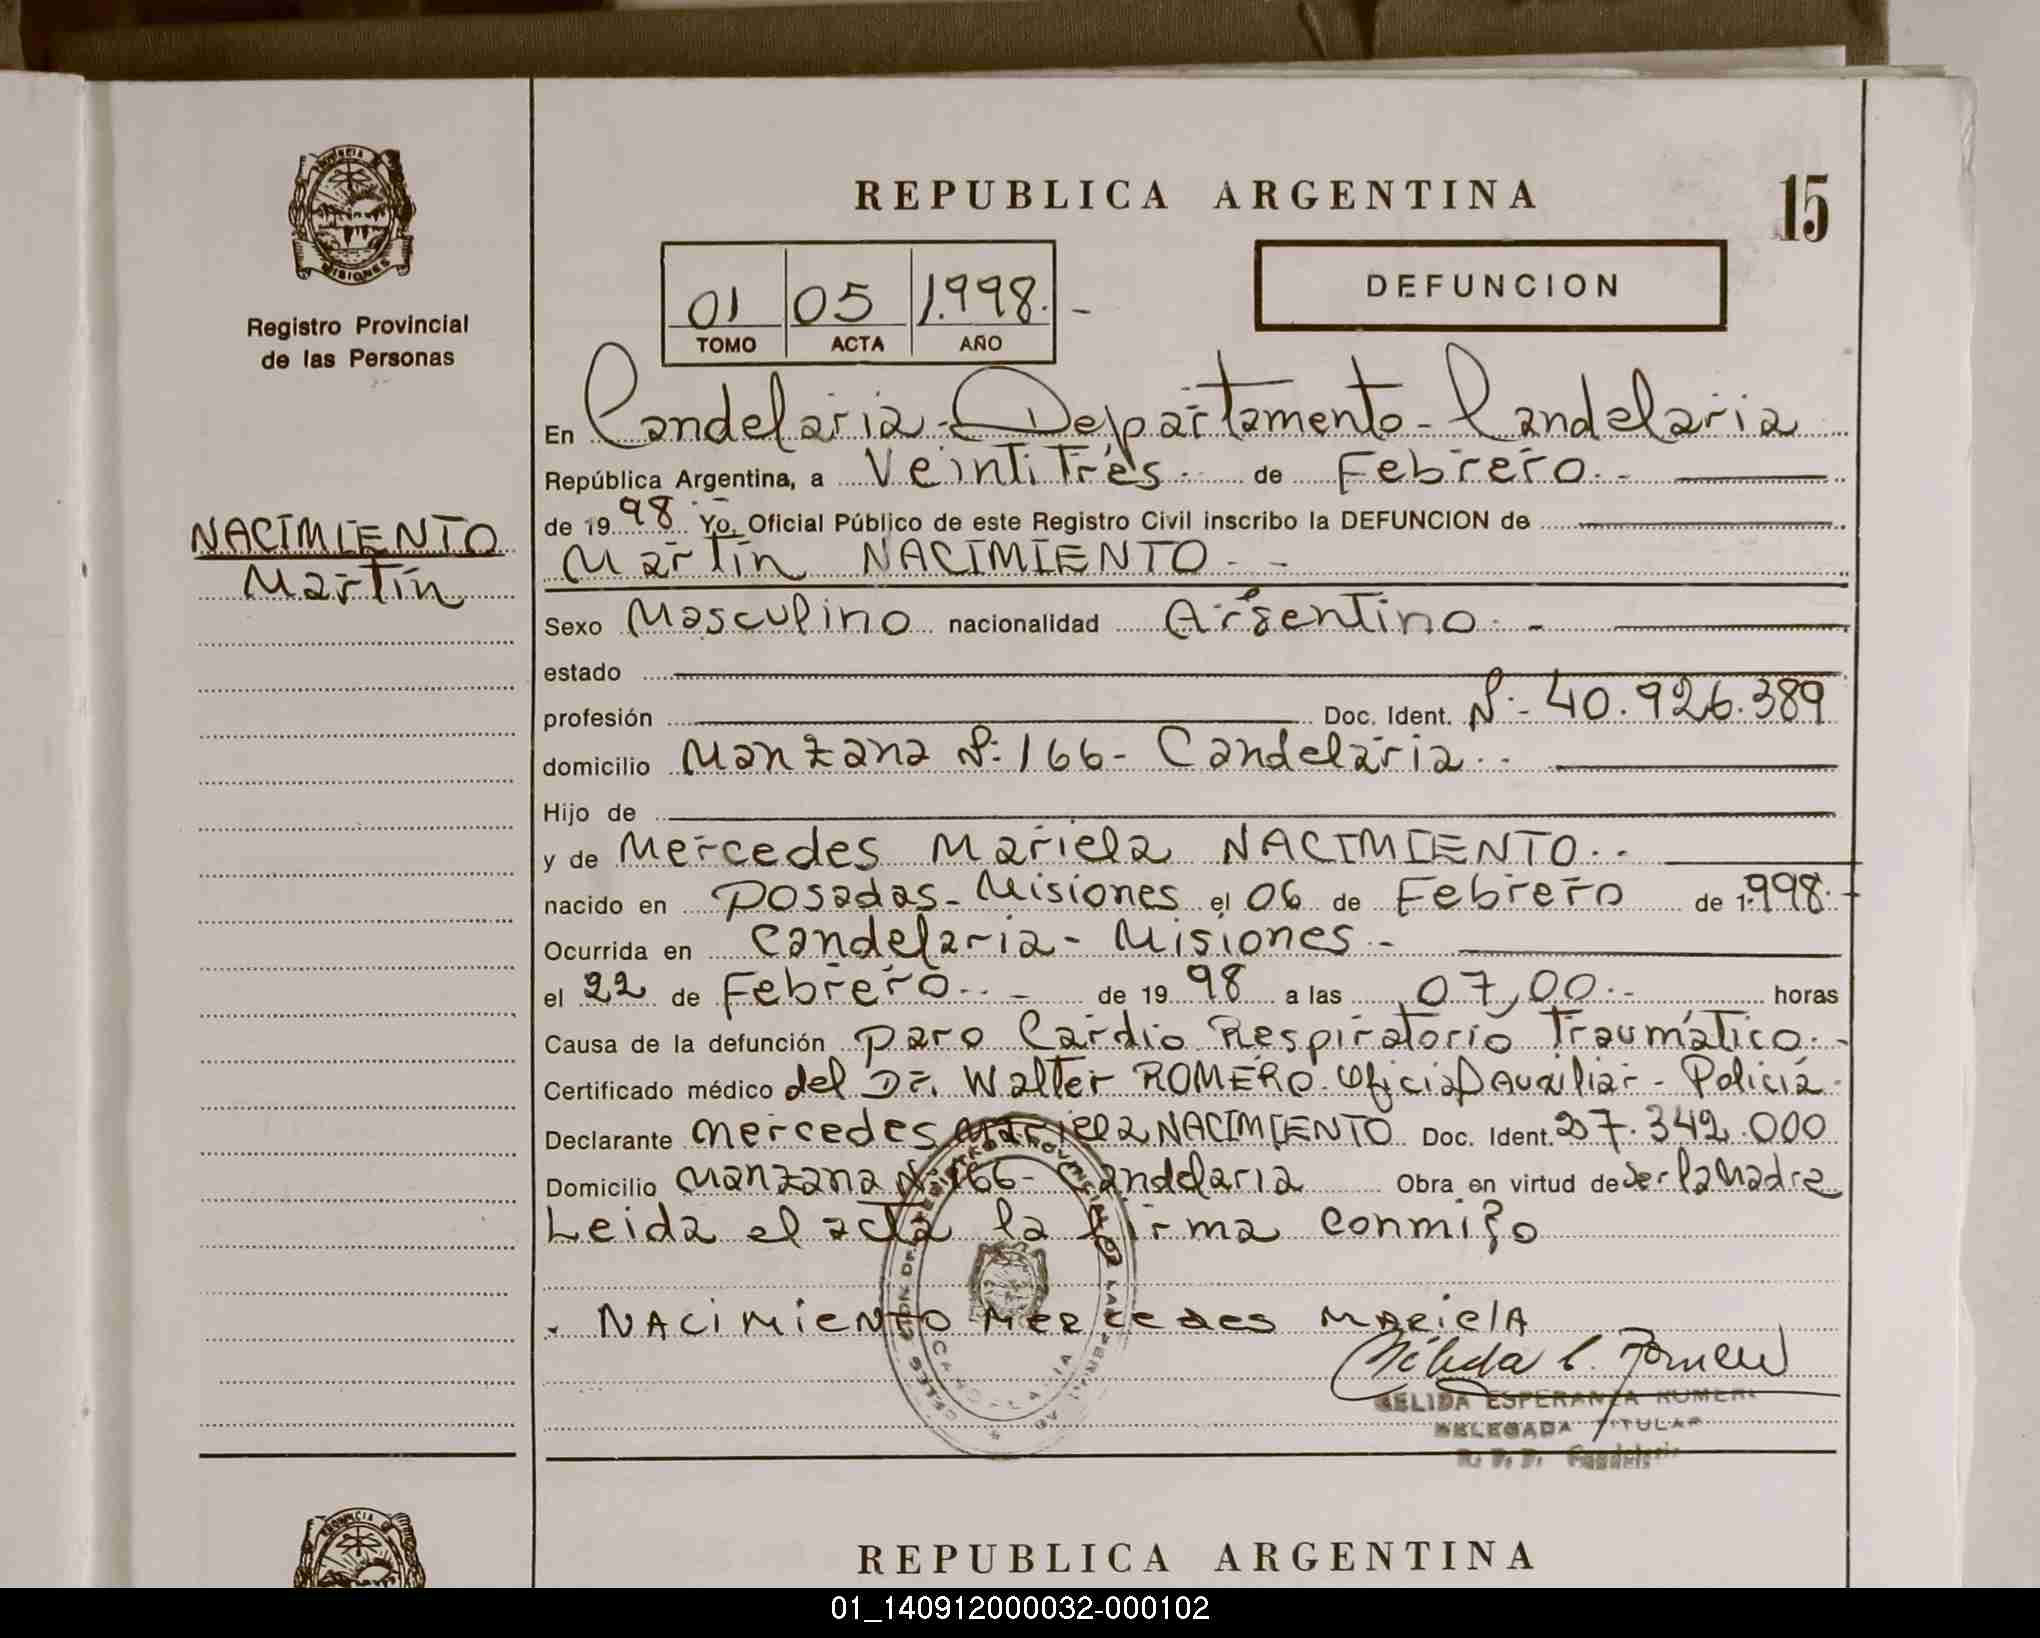 REPUBLICA ARGENTINA
15
01 05 1.998.-
TOMO ACTA AÑO
DEFUNCION
PROVINCIA DE
MISIONES
Registro Provincial
de las Personas
NACIMIENTO
Martín
En Candelaria - Departamento - Candelaria
República Argentina, a Veintitrés de Febrero.-
de 19 98 Yo, Oficial Público de este Registro Civil inscribo la DEFUNCION de
Martín NACIMIENTO.-
Sexo Masculino nacionalidad Argentino.-
estado
profesión Doc. Ident. Nº- 40.926.389
domicilio Manzana Nº: 166- Candelaria.-
Hijo de
y de Mercedes Mariela NACIMIENTO.-
nacido en Posadas - Misiones el 06 de Febrero de 1.998.-
Ocurrida en Candelaria - Misiones.-
el 22 de Febrero.- de 19 98 a las 07,00.- horas
Causa de la defunción paro Cardio Respiratorio Traumático.-
Certificado médico del Dr. Walter ROMERO. Oficial Auxiliar - Policía.
Declarante Mercedes Mariela NACIMIENTO Doc. Ident. 27.342.000
Domicilio Manzana Nº: 166- Candelaria Obra en virtud de ser la Madre
Leida el acta la firma conmigo
NACIMIENTO MERCEDES MARIELA
CELIDA ESPERANZA ROMERO
DELEGADA TITULAR
R. P. P. Candelaria
REPUBLICA ARGENTINA
01_140912000032-000102